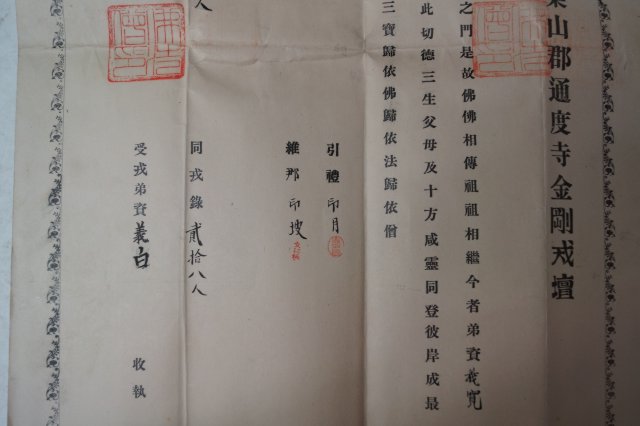 梁山郡通度寺金剛戒壇
之門是故佛佛相傳祖祖相繼今者弟資義寬
此切德三生父母及十方咸靈同登彼岸成最
三寶歸依佛歸依法歸依僧
引禮 印月
維那 印
人
同戒錄 貳拾八人
受戒弟資 義白 收執